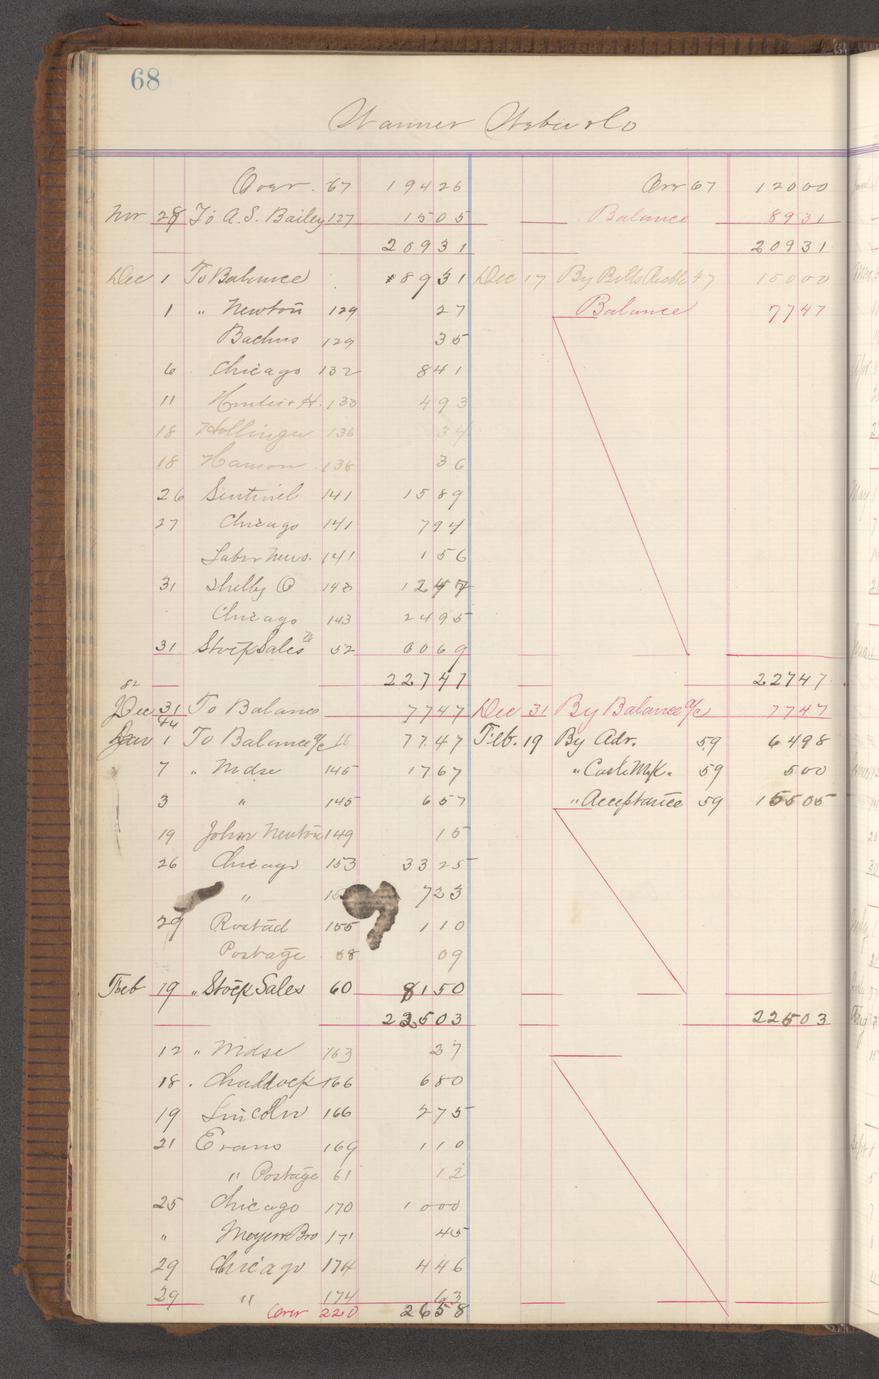 68
Wanner Weber & Co
Over. 67 19426 Over 67 12000
Nov 28 To A. S. Bailey 127 1505 Balance 8931
20931 20931
Dec 1 To Balance 8931 Dec 17 By Bills Recble 47 15000
1 " Newton 129 27 Balance 7747
Bachus 129 35
6 Chicago 132 841
11 H. 493
18 Hollinger 136 34
18 Hanson 138 36
26 Sentinel 141 1589
27 Chicago 141 794
Labor News. 141 156
31 Shelby O 143 1247
Chicago 143 2495
31 Stock Sales 52 6069
22747 22747
82
Dec 31 To Balance 7747 Dec 31 By Balance a/c 7747
84
Jan 1 To Balance a/c 7747 Feb. 19 By Adv. 59 6498
7 " Mdse 145 1767 " Cash 59 500
3 " 145 657 " Acceptance 59 15505
19 John Newton 149 15
26 Chicago 153 3325
" 723
29 Rostad 155 110
Postage 58 09
Feb 19 " Stock Sales 60 8150
22503 22503
12 " Mdse 163 27
18 . Chaddock 166 680
19 Lincoln 166 275
21 Evans 169 110
" Postage 61 12
25 Chicago 170 1000
" Meyer Bro 171 45
29 Chicago 174 446
29 " 174 63
Over 220 2658